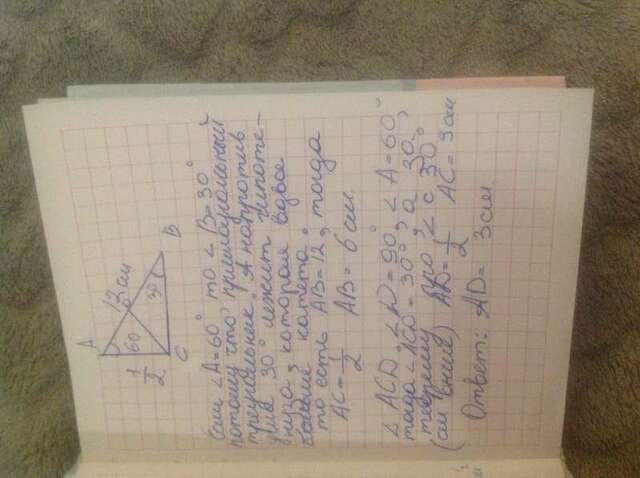 A
12 см
60
30
1/2
C
B
Если ∠A=60° то ∠B=30°
потому что прямоугольный
треугольник. А напротив
угла 30° лежит гипоте-
нуза, которая вдвое
больше катета,
то есть AB=12, тогда
AC=1/2 AB=6 см.
△ACD, ∠D=90°, ∠A=60°
тогда ∠ACD=30°, а 30°,
теорему про ∠ с 30°
(см выше) AD=1/2 AC=3 см
Ответ: AD=3 см